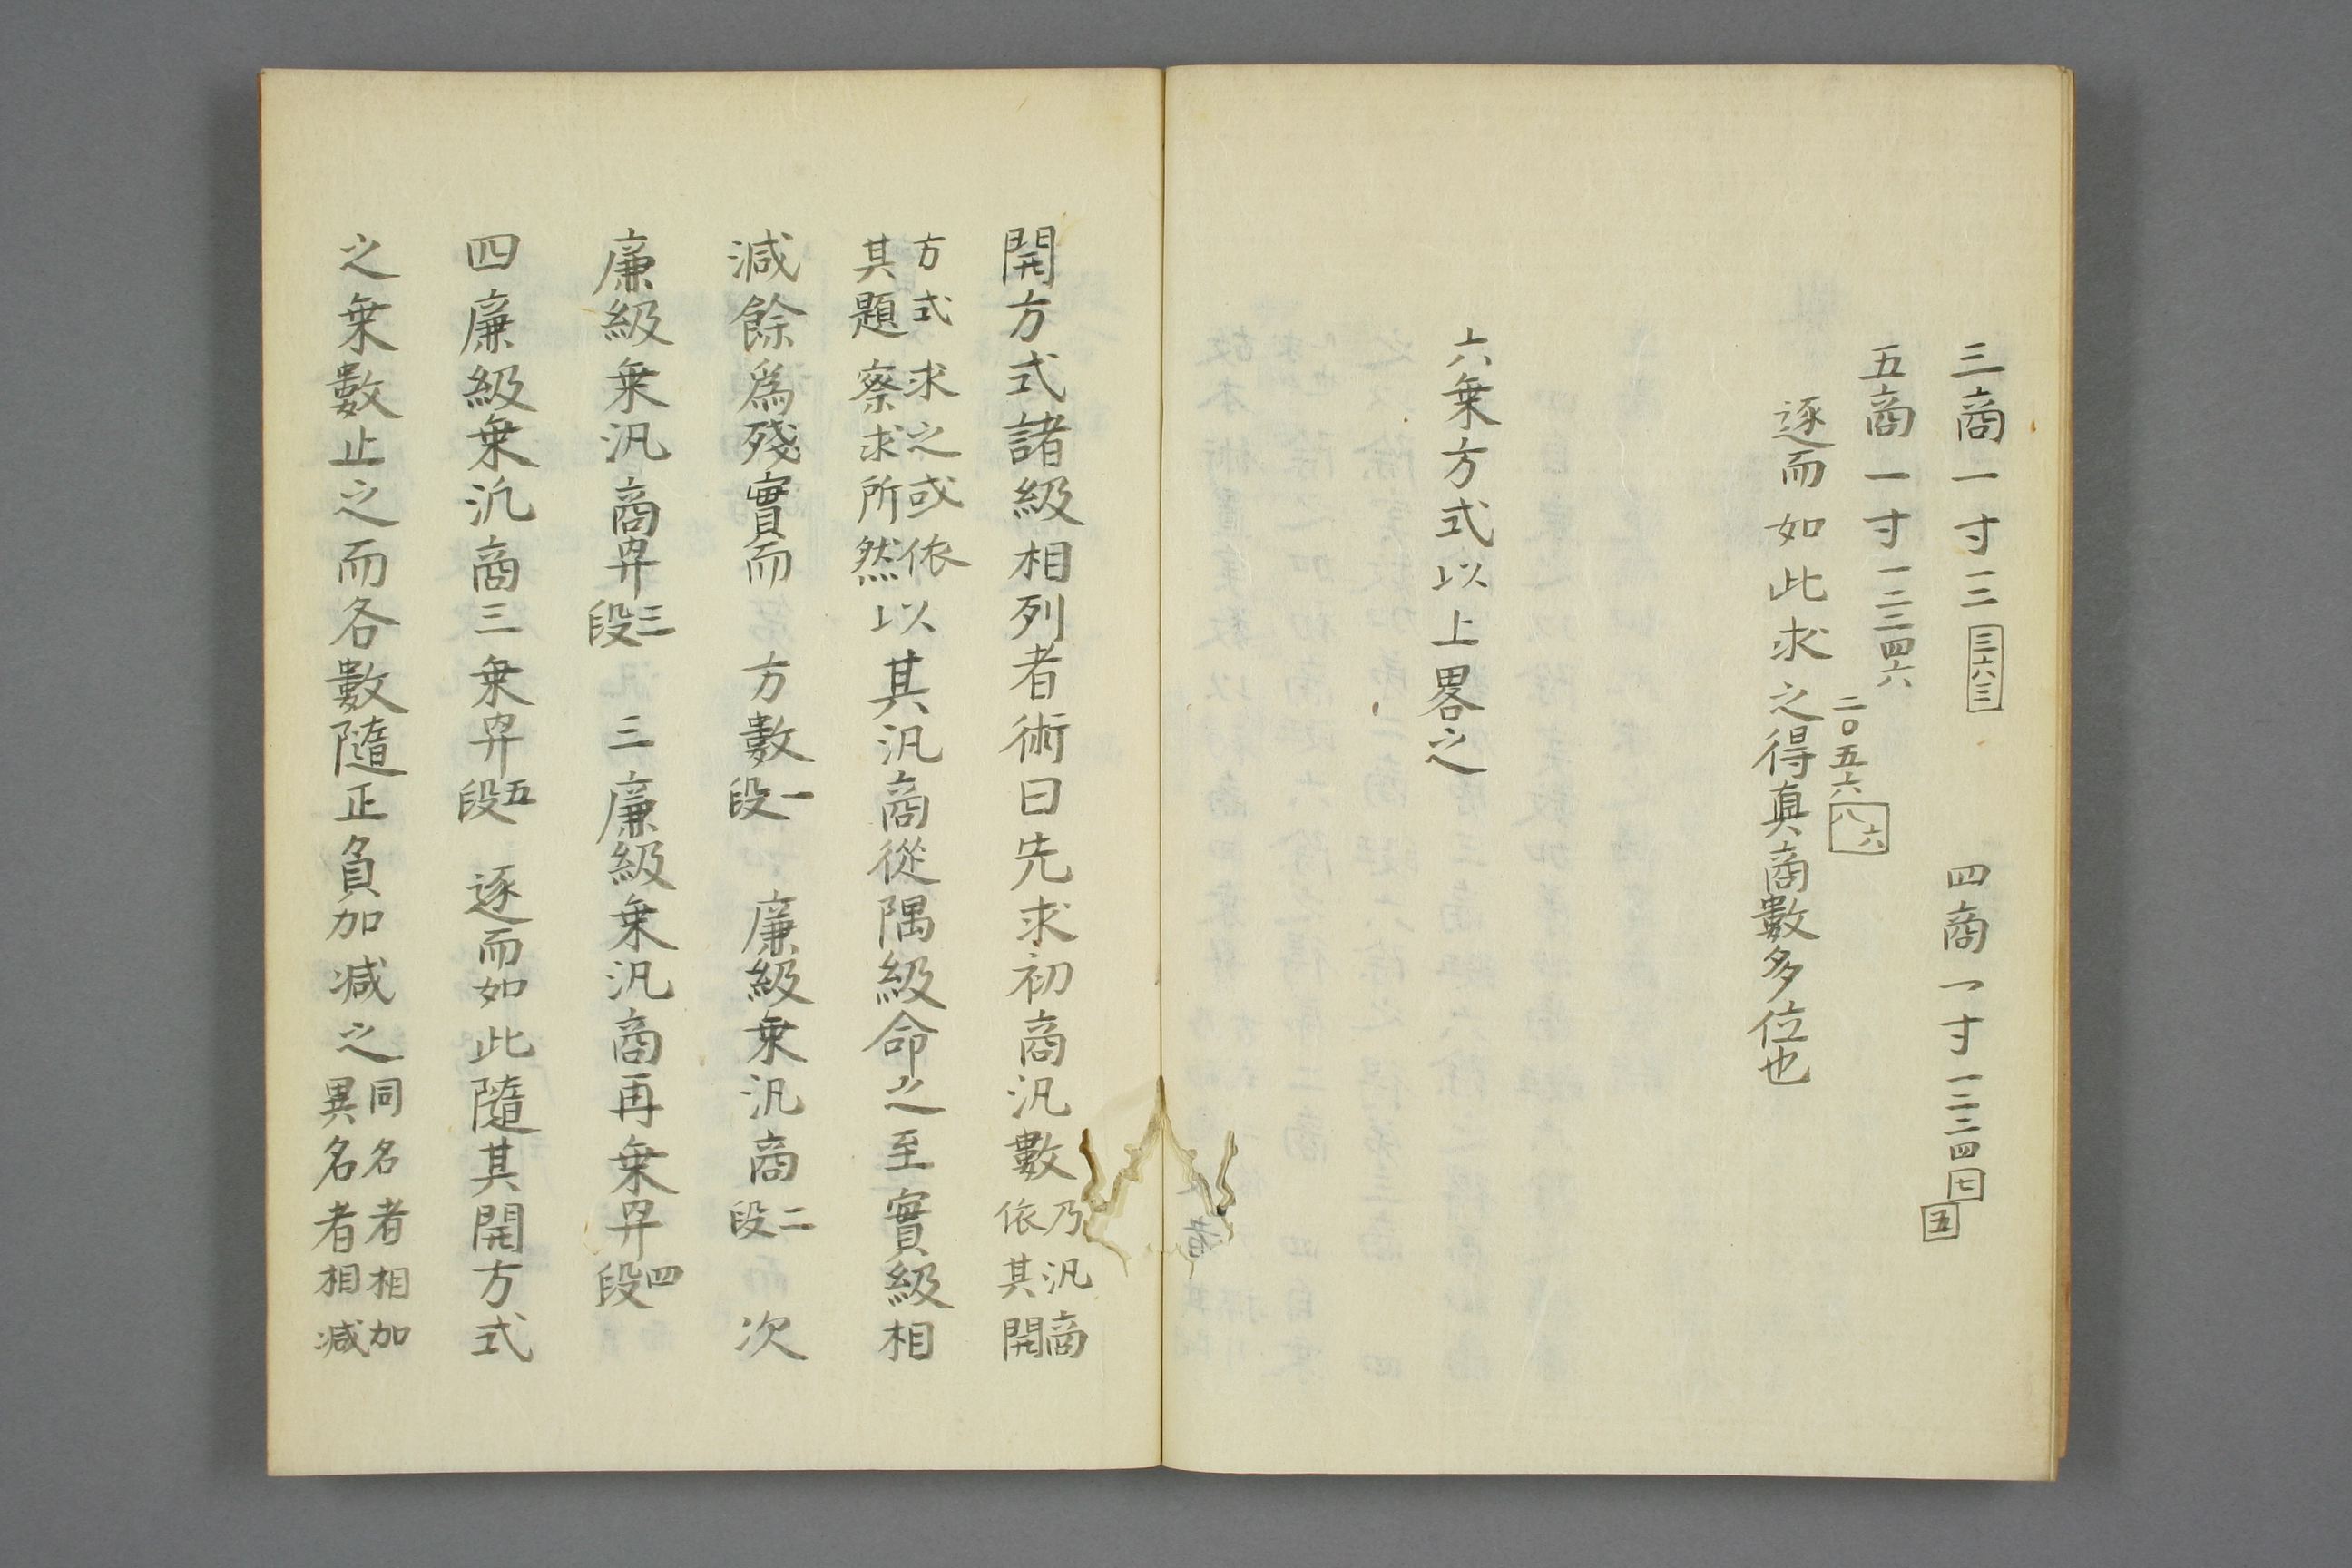 三商一寸三三六三
四商一寸一二三四七五
五商一寸一二三四六
二〇五六八六
逐而如此求之得真商數多位也
六乗方式以上畧之
開方式諸級相列者術曰先求初商汎數
乃汎商
依其開
方式求之或依
其題察求所然
以其汎商從隅級命之至實級相
減餘爲殘實而
方數
一
段
廉級乗汎商
二
段
次
廉級乗汎商
三
段
三廉級乗汎商再乗
四
段
四廉級乗汎商三乗
五
段
逐而如此隨其開方式
之乗數止之而各數隨正負加减之
同名者相加
異名者相减